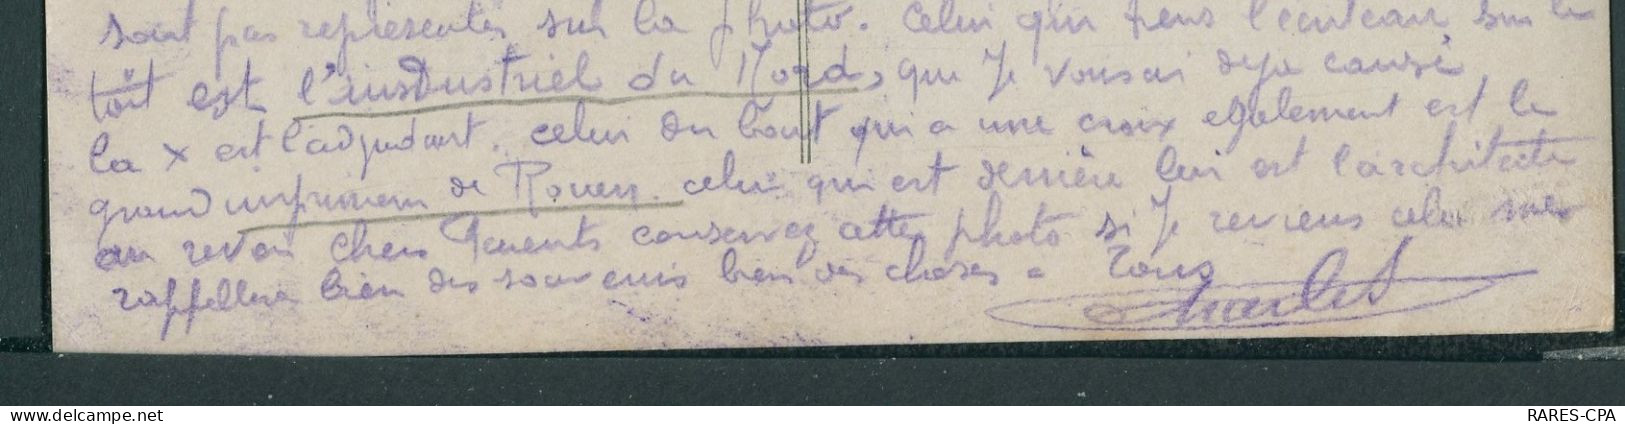 sont pas représentés sur la photo. Celui qui tiens l'ecriteau sur le
toit est l'industriel du Nord, que je vousai deja causé,
la x est l'adjudant. celui du bout qui a une croix egalement est le
grand imprimeur de Rouen. celui qui est derrière lui est l'architecte
au revoir chers Parents conservez cette photo si Je reviens cela me
rappellera bien des souvenirs bien des choses a Tous
Charles
www.delcampe.net
RARES-CPA